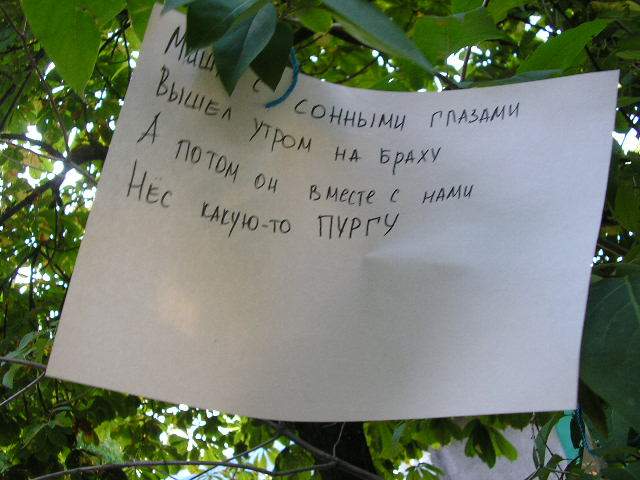 с сонными глазами
Вышел утром на браху
А потом он вместе с нами
Нёс какую-то ПУРГУ